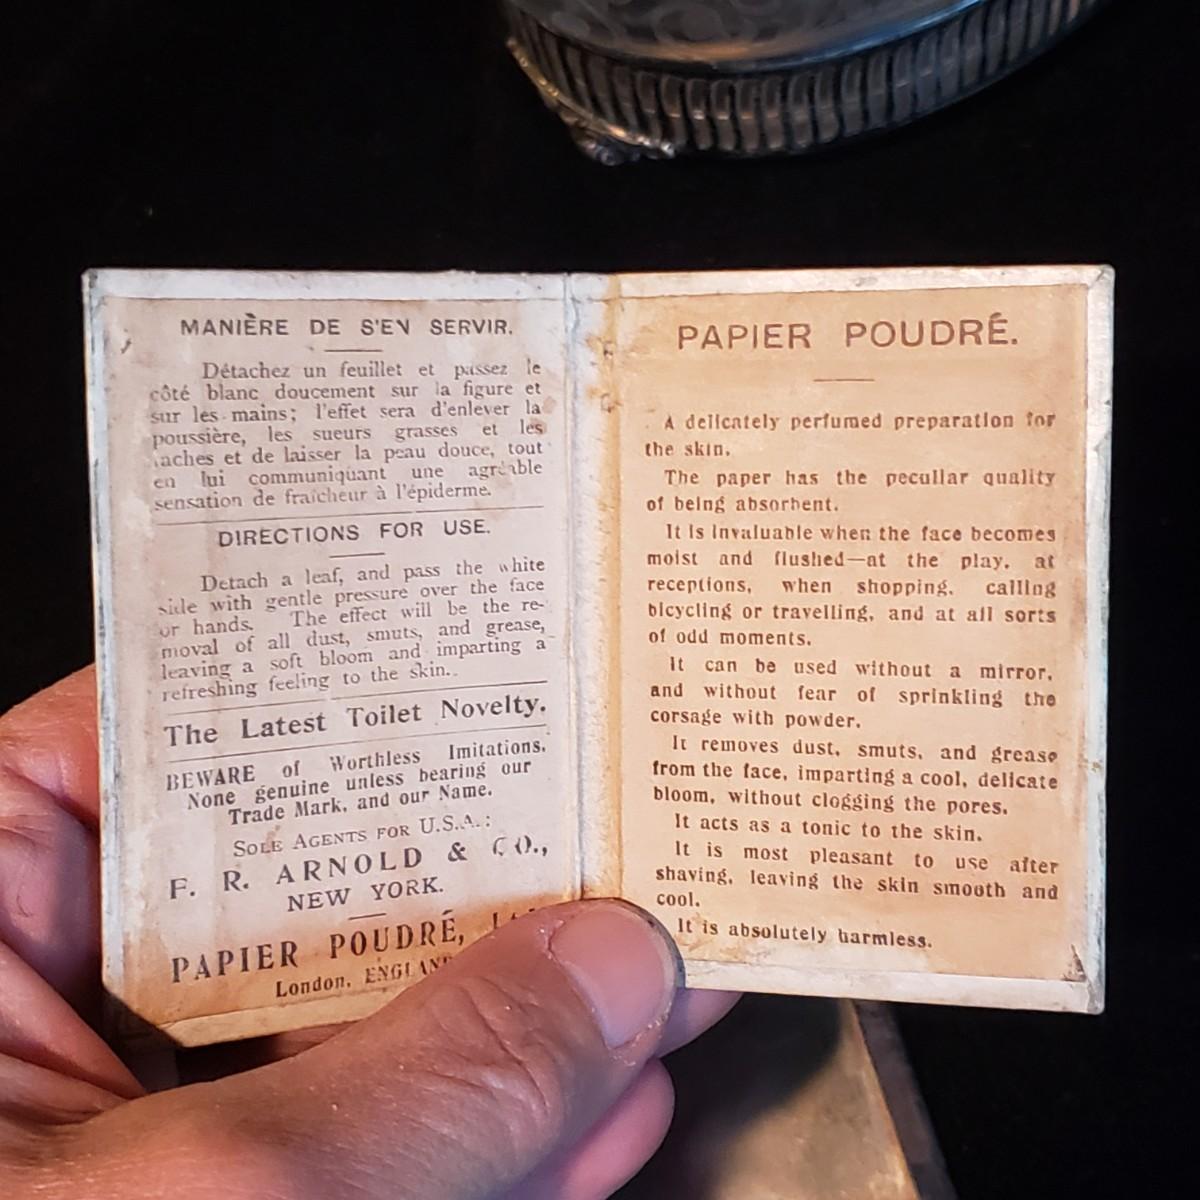 MANIÈRE DE S'EN SERVIR.
Détachez un feuillet et passez le
côté blanc doucement sur la figure et
sur les mains; l'effet sera d'enlever la
poussière, les sueurs grasses et les
taches et de laisser la peau douce, tout
en lui communiquant une agréable
sensation de fraîcheur à l'épiderme.
DIRECTIONS FOR USE.
Detach a leaf, and pass the white
side with gentle pressure over the face
or hands. The effect will be the re-
moval of all dust, smuts, and grease,
leaving a soft bloom and imparting a
refreshing feeling to the skin.
The Latest Toilet Novelty.
BEWARE of Worthless Imitations.
None genuine unless bearing our
Trade Mark, and our Name.
SOLE AGENTS FOR U.S.A.:
F. R. ARNOLD & CO.,
NEW YORK.
PAPIER POUDRÉ,
London, ENGLAND
PAPIER POUDRÉ.
A delicately perfumed preparation for
the skin.
The paper has the peculiar quality
of being absorbent.
It is invaluable when the face becomes
moist and flushed—at the play, at
receptions, when shopping, calling
bicycling or travelling, and at all sorts
of odd moments.
It can be used without a mirror,
and without fear of sprinkling the
corsage with powder.
It removes dust, smuts, and grease
from the face, imparting a cool, delicate
bloom, without clogging the pores.
It acts as a tonic to the skin.
It is most pleasant to use after
shaving, leaving the skin smooth and
cool.
It is absolutely harmless.